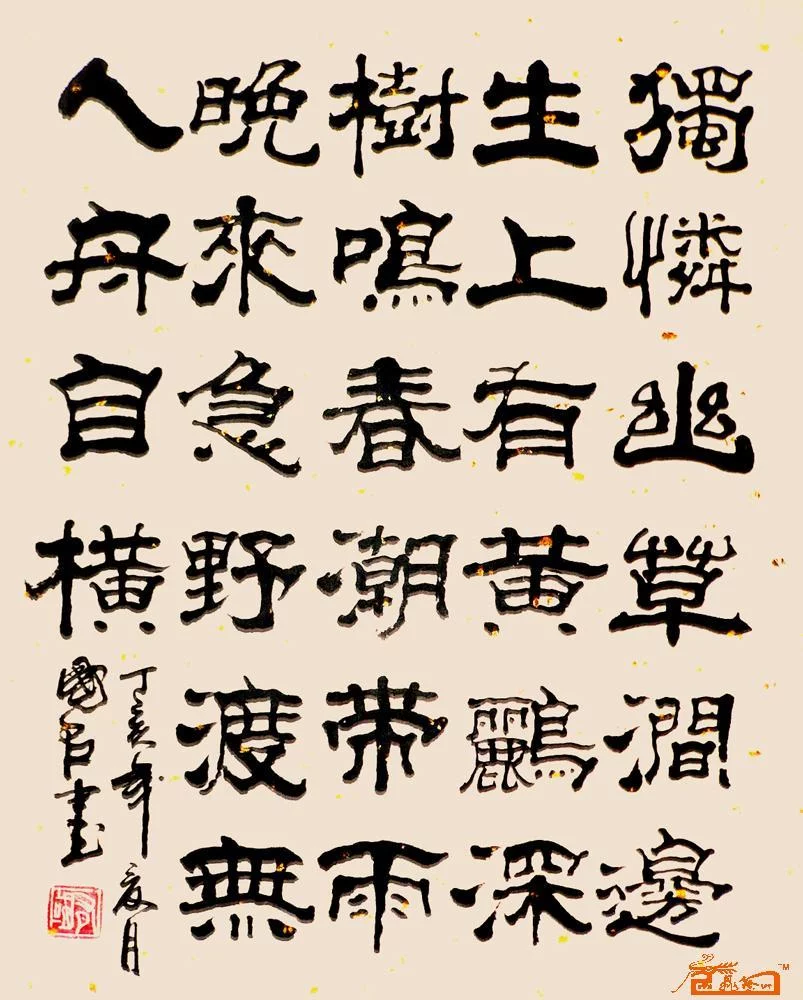 獨憐幽草澗邊
生上有黃鸝深
樹鳴春潮帶雨
晚來急野渡無
人舟自橫
丁亥年夏月
國書